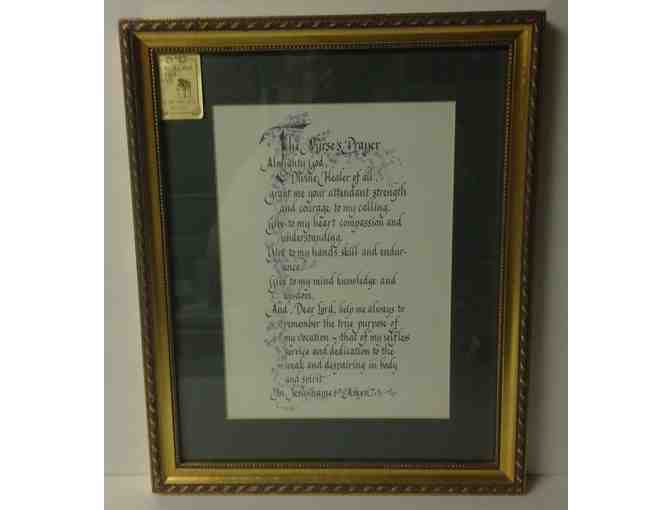 The Nurse's Prayer
Almighty God,
Divine Healer of all,
grant me your attendant strength
and courage to my calling.
Give to my heart compassion and
understanding.
Give to my hands skill and endur-
ance.
Give to my mind knowledge and
wisdom.
And, Dear Lord, help me always to
remember the true purpose of
my vocation ~ that of my selfless
service and dedication to the
weak and despairing in body
and spirit.
In Jesus' name Amen